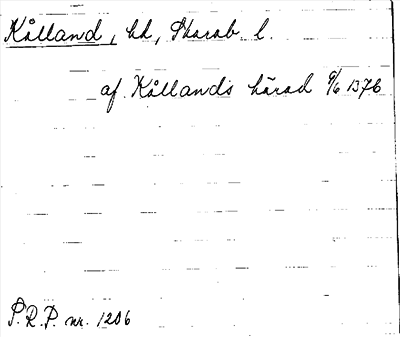 Kålland, hd, Skarab. l.
af Kållands härad 9/6 1376
P.R.P. nr. 1206